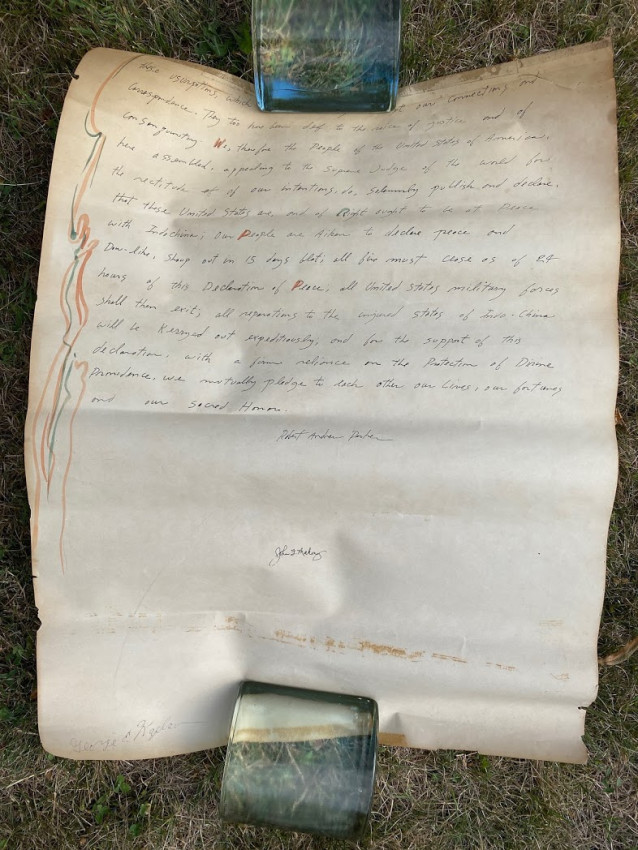 these usurpations, which our connections and
Correspondence. They too have been deaf to the voice of justice and of
Consanguinity. We, therefore the People of the United States of American,
here assembled, appealing to the Supreme Judge of the world for
the rectitude of of our intentions, do, Solemnly publish and declare,
that these United States are, and of Right ought to be at Peace
with Indochina; our People are to declare peace and
out in 15 days flat; all fire must cease as of 24
hours of this Declaration of Peace, all United States military forces
shall then exit; all reparations to the injured states of Indo-China
will be out expeditiously, and for the support of this
declaration. with a firm reliance on the Protection of Divine
Providence. we mutually pledge to each other our Lives, our fortunes
and our Sacred Honor.
Robert Andrew Parker
John
George